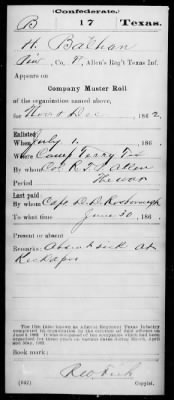 Confederate.
B 17 Texas.
H. Balhan
Pvt, Co. F, Allen's Reg't Texas Inf.
Appears on
Company Muster Roll
of the organization named above,
for Nov & Dec, 1862.
Enlisted:
When July 1, 186 .
Where Camp Terry Tex
By whom Col R. T. P. Allen
Period The war
Last paid:
By whom Capt D. D. Rosborough
To what time June 30, 186 .
Present or absent
Remarks: Absent sick at
Kickapoo
The 17th (also known as Allen's) Regiment Texas Infantry
Book mark:
(642) Copyist.